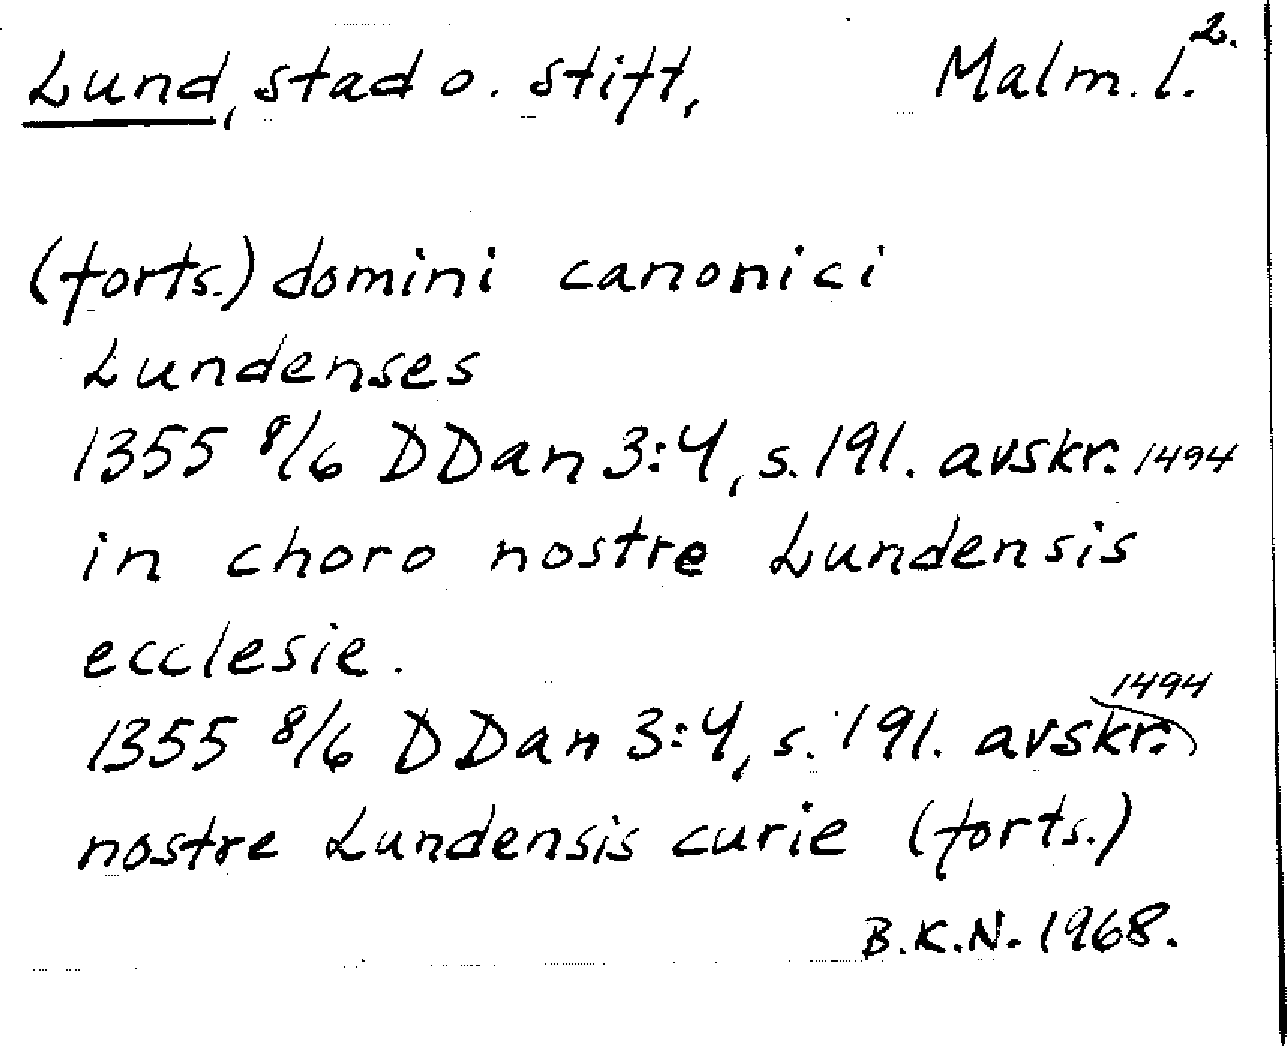 Lund, stad o. stift, Malm. l. 2.
(forts.) domini canonici
Lundenses
1355 8/6 DDan 3:4, s. 191. avskr. 1494
in choro nostre Lundensis
ecclesie.
1355 8/6 DDan 3:4, s. 191. avskr. 1494
nostre Lundensis curie (forts.)
B.K.N. 1968.